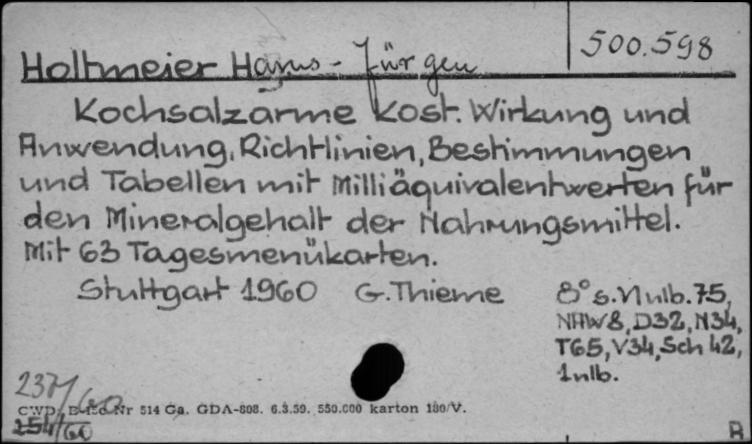 500.598
Holtmeier Hans-Jürgen
Kochsalzarme Kost. Wirkung und
Anwendung, Richtlinien, Bestimmungen
und Tabellen mit Milliäquivalentwerten für
den Mineralgehalt der Nahrungsmittel.
Mit 63 Tagesmenükarten.
Stuttgart 1960 G. Thieme 8° s. Nulb. 75,
NHW8, D32, N34,
T65, V34, Sch 42,
1 nlb.
237/60
CWD, Nr 514 Ga. GDA-808. 6.3.59. 550.000 karton 180/V.
254/60
B